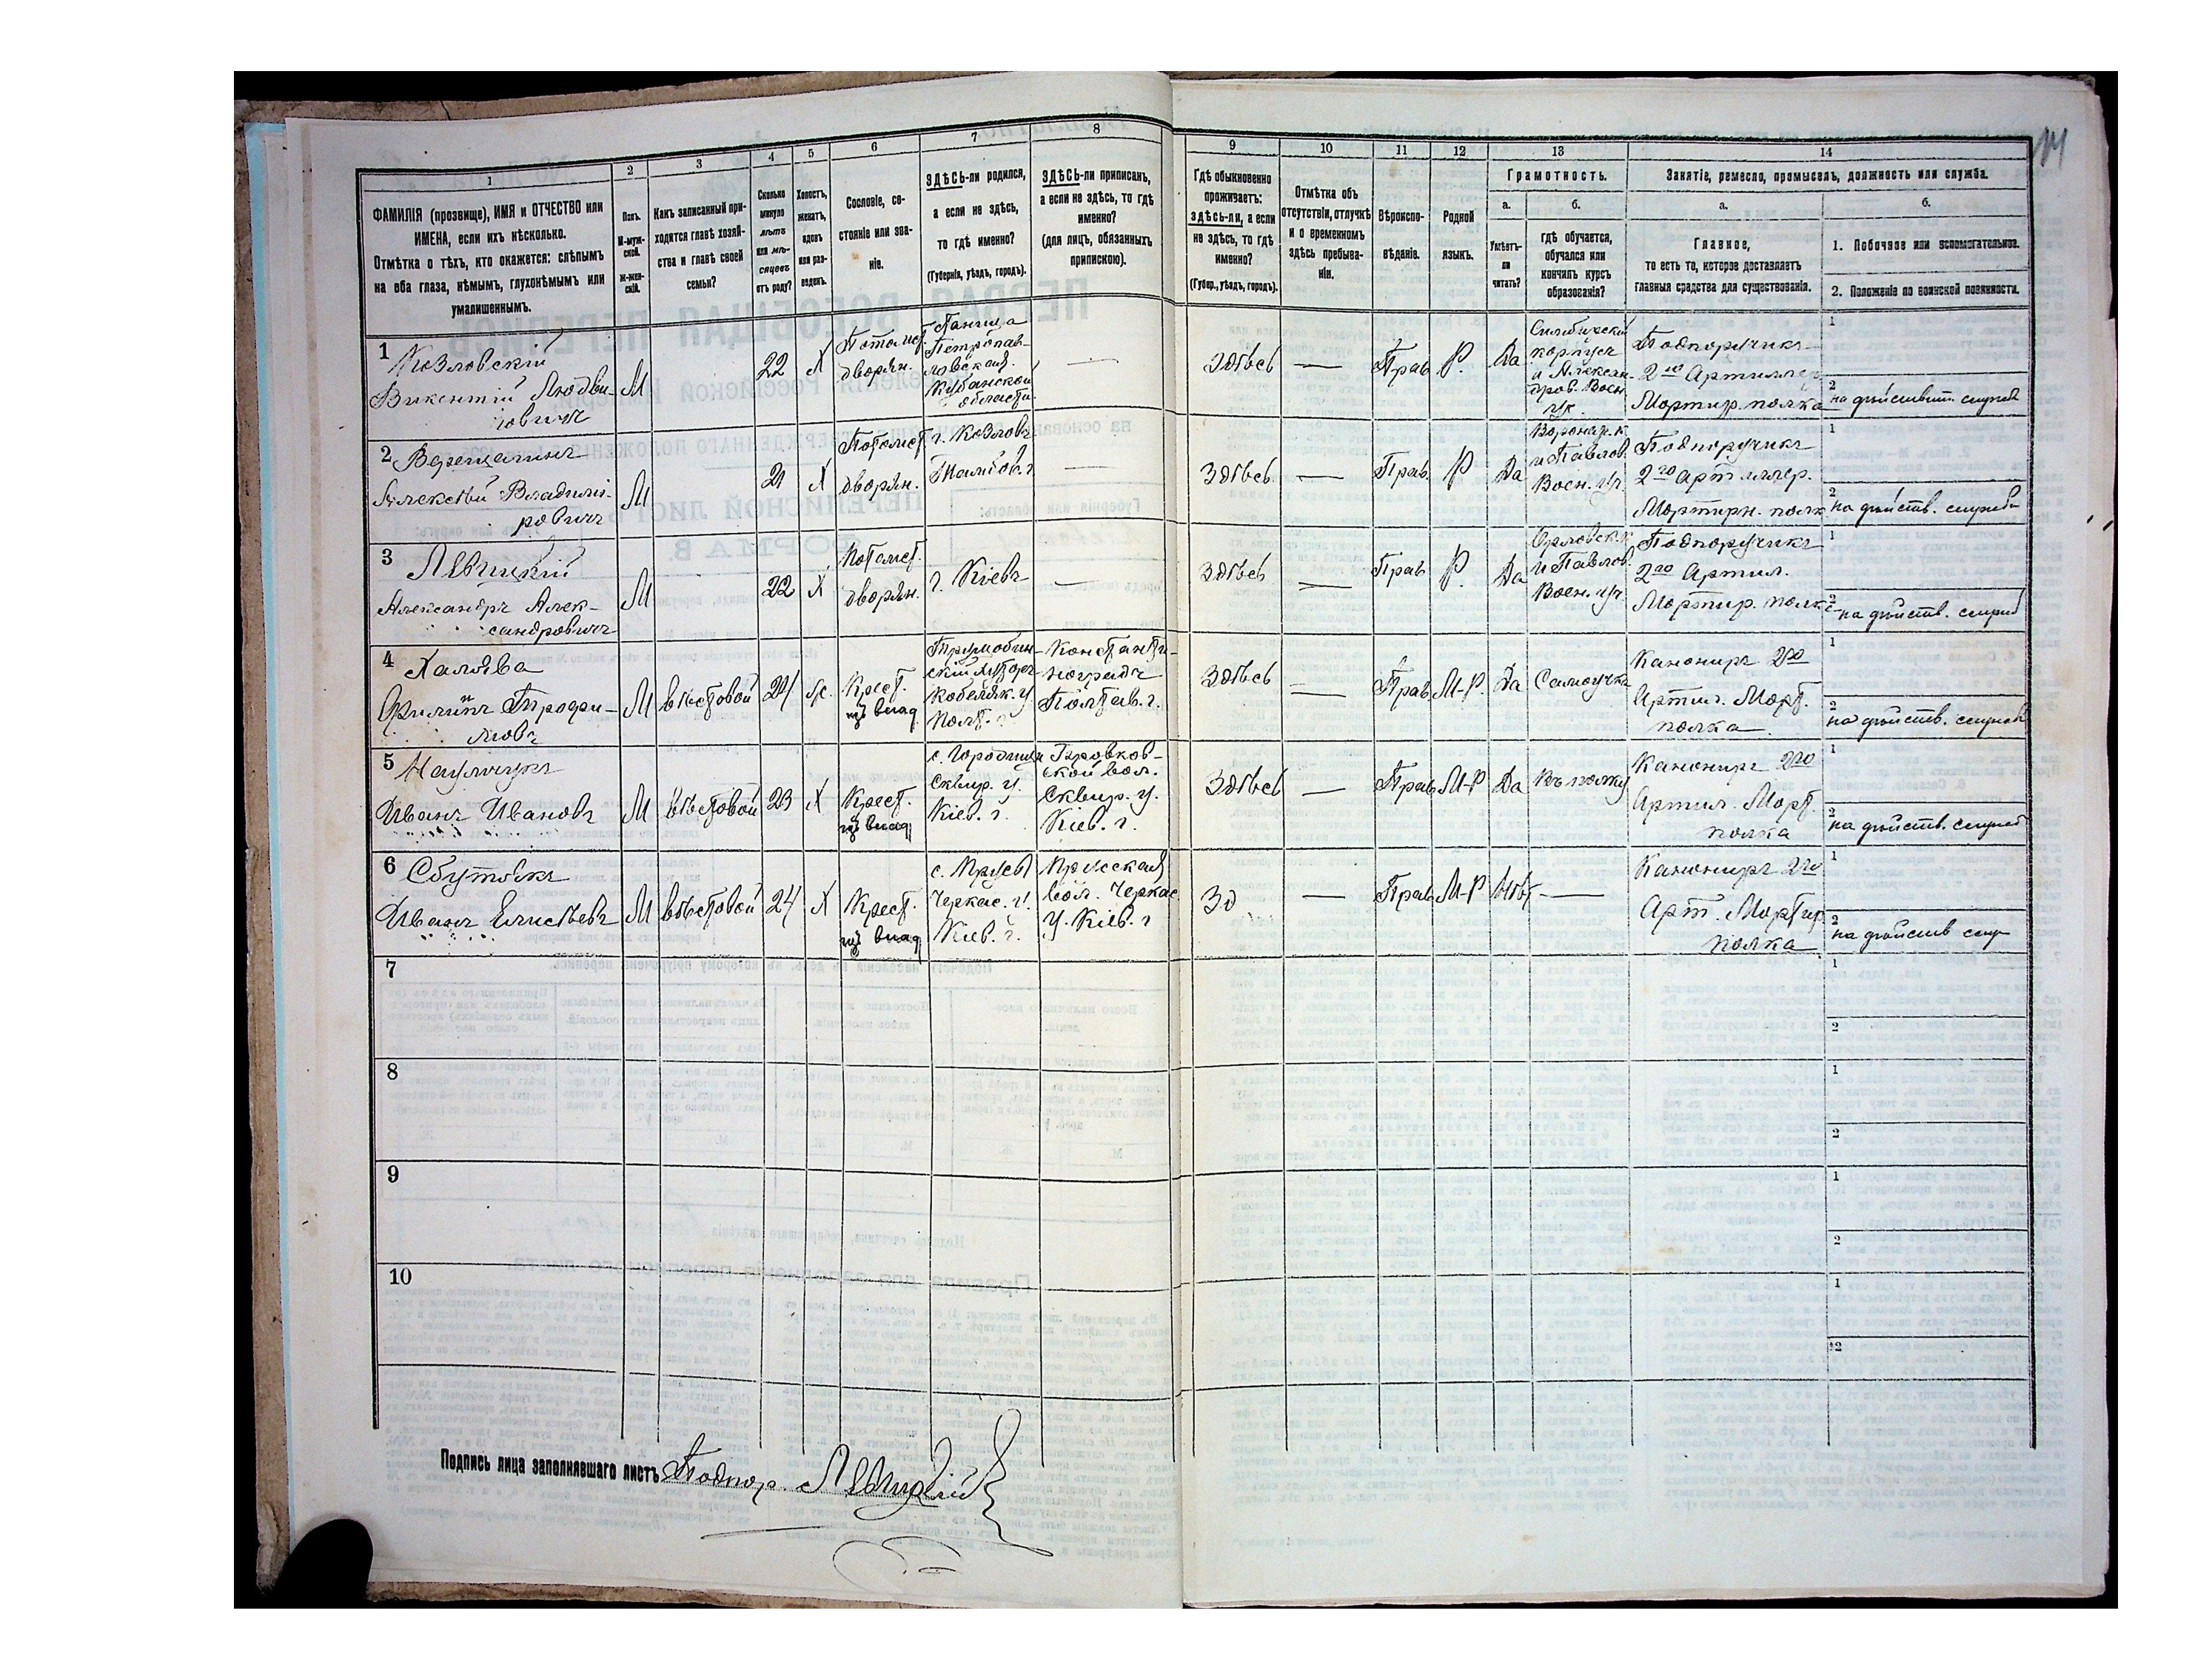 14
1 2 3 4 5 6 7 8 9 10 11 12 13 14
ФАМИЛІЯ (прозвище), ИМЯ и ОТЧЕСТВО или
ИМЕНА, если ихъ нѣсколько.
Отмѣтка о тѣхъ, кто окажется: слѣпымъ
на оба глаза, нѣмымъ, глухонѣмымъ или
умалишеннымъ.
Полъ.
М-муж-
ской.
Ж-жен-
скій.
Какъ записанный при-
ходится главѣ хозяй-
ства и главѣ своей
семьи?
Сколько
минуло
лѣтъ
или мѣ-
сяцевъ
отъ роду?
Холостъ,
женатъ,
вдовъ
или раз-
веденъ.
Сословіе, со-
стояніе или зва-
ніе.
ЗДѢСЬ-ли родился,
а если не здѣсь,
то гдѣ именно?
(Губернія, уѣздъ, городъ).
ЗДѢСЬ-ли приписанъ,
а если не здѣсь, то гдѣ
именно?
(для лицъ, обязанныхъ
припискою).
Гдѣ обыкновенно
проживаетъ:
ЗДѢСЬ-ли, а если
не здѣсь, то гдѣ
именно?
(Губер., уѣздъ, городъ).
Отмѣтка объ
отсутствіи, отлучкѣ
и о временномъ
здѣсь пребыва-
ніи.
Вѣроиспо-
вѣданіе.
Родной
языкъ.
Грамотность.
а.
Умѣетъ-
ли
читать?
б.
гдѣ обучается,
обучался или
кончилъ курсъ
образованія?
Занятіе, ремесло, промыселъ, должность или служба.
а.
Главное,
то есть то, которое доставляетъ
главныя средства для существованія.
б.
1. Побочное или вспомогательное.
2. Положеніе по воинской повинности.
1 Козловскій
Викентій Людви-
говичъ
М
22
Х
Потомст.
дворян.
Станица
Петропав-
ловская
Кубанской
области
—
Здѣсь
—
Прав
Р.
Да
Симбирскій
корпусъ
и Алексан-
дров. Воен.
уч.
Подпоручикъ
2го Артиллер
Мортир. полка
1
2
на дѣйствит. службѣ
2 Верещагинъ
Алексѣй Владимі-
ровичъ
М
21
Х
Потомст
дворян.
г. Козловъ
Тамбов. г
—
Здѣсь
—
Прав.
Р
Да
Воронеж. к
и Павлов.
Воен. уч.
Подпоручикъ
2го Артиллер.
Мортирн. полк
1
2
на дѣйств. службѣ
3 Лѣвицкій
Александръ Алек-
сандровичъ
М
22
Х
Потомст.
дворян.
г. Кіевъ
—
Здѣсь
—
Прав
Р.
Да
Орловск. к
и Павлов.
Воен. уч.
Подпоручикъ
2го Артил.
Мортир. полка
1
2
на дѣйств. служб
4 Халява
Филипъ Трофи-
мовъ
М
вѣстовой
24
Крест.
изъ влад
Кобеляк. у
Полт. г.
Константи-
ноградъ
Полтав. г.
Здѣсь
—
Прав.
М-Р.
Да
Самоучка
Канониръ 2го
Артил. Морт.
полка
1
2
на дѣйств. службѣ
5
Иванъ Ивановъ
М
вѣстовой
23
Х
Крест.
изъ влад
с. Городища
Сквир. у.
Кіев. г.
ской вол.
Сквир. у.
Кіев. г.
Здѣсь
—
Прав
М-Р
Да
Въ полку
Канониръ 2го
Артил. Морт.
полка
1
2
на дѣйств. службѣ
6
Иванъ Елисѣевъ
М
вѣстовой
24
Х
Крест.
изъ влад
с. Прусы
Черкас. у.
Кіев. г.
Прусская
вол. Черкас.
у. Кіев. г
Зд
—
Прав
М-Р
Нѣт
—
Канониръ 2го
Арт. Мортир.
полка
1
2
на дѣйств слу
7
1
2
8
1
2
9
1
2
10
1
2
Подпись лица заполнявшаго листъ Подпор. Лѣвицкій